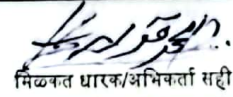 मिळकत धारक/अभिकर्ता सही